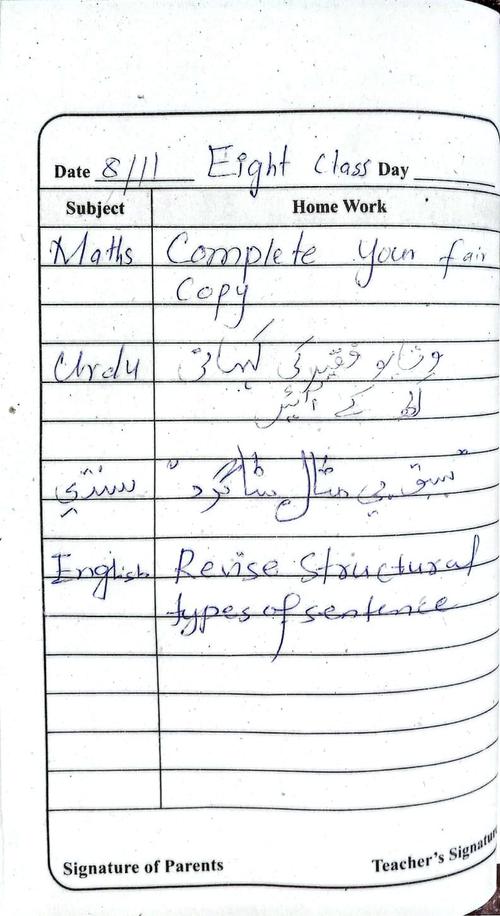 Date 8/11 Eight Class Day
Subject Home Work
Maths Complete Your fair
Copy
Urdu وتایو فقیر کی کہانی
لکھ کے آئیں
سنڌي "سبق بي مثال شاگرد"
English Revise Structural
types of sentence
Signature of Parents Teacher's Signatu